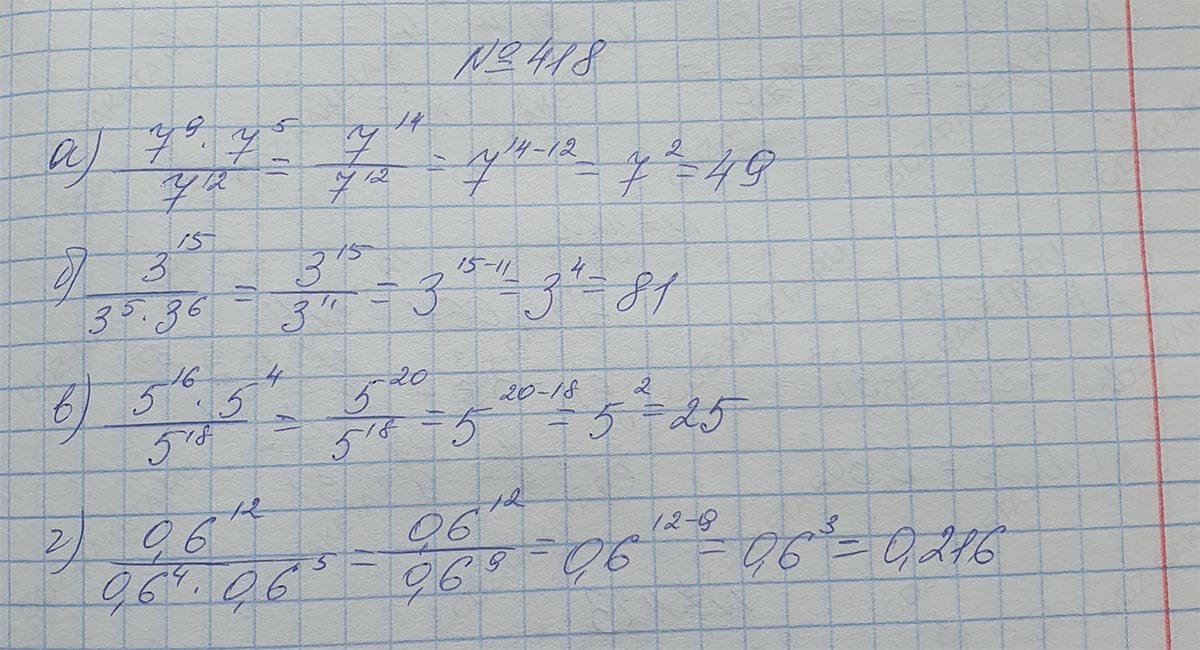 № 418
а) 7^9 · 7^5 / 7^12 = 7^14 / 7^12 = 7^(14-12) = 7^2 = 49
б) 3^15 / 3^5 · 3^6 = 3^15 / 3^11 = 3^(15-11) = 3^4 = 81
в) 5^16 · 5^4 / 5^18 = 5^20 / 5^18 = 5^(20-18) = 5^2 = 25
г) 0,6^12 / 0,6^4 · 0,6^5 = 0,6^12 / 0,6^9 = 0,6^(12-9) = 0,6^3 = 0,216